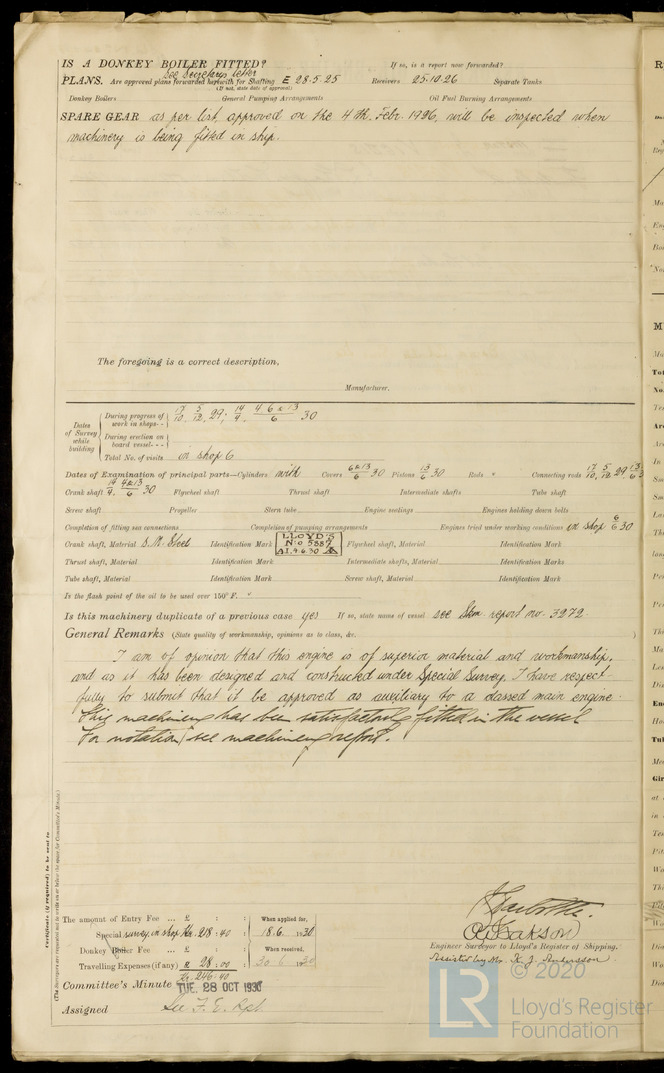 IS A DONKEY BOILER FITTED? If so, is a report now forwarded?
See Secretarys letter
PLANS. Are approved plans forwarded herewith for Shafting E 28.5.25 Receivers 25.10.26 Separate Tanks
(If not, state date of approval)
Donkey Boilers General Pumping Arrangements Oil Fuel Burning Arrangements
SPARE GEAR as per list, approved on the 4th. Febr. 1926, will be inspected when
machinery is being fitted in ship.
The foregoing is a correct description,
Manufacturer.
Dates of Survey while building
During progress of work in shops-- 17/10, 5/12, 29. 14/4, 4, 6 & 13/6 30
During erection on board vessel---
Total No. of visits in shop 6
Dates of Examination of principal parts—Cylinders with Covers 6 & 13/6 30 Pistons 13/6 30 Rods " Connecting rods 17/10, 5/12 29, 13/6 30
Crank shaft 14/4, 4 & 13/6 30 Flywheel shaft Thrust shaft Intermediate shafts Tube shaft
Screw shaft Propeller Stern tube Engine seatings Engines holding down bolts
Completion of fitting sea connections Completion of pumping arrangements Engines tried under working conditions in shop 6/6 30
Crank shaft, Material S.M. Steel Identification Mark LLOYD'S Flywheel shaft, Material Identification Mark
No 5887
A.I. 4.6.30
Thrust shaft, Material Identification Mark Intermediate shafts, Material Identification Marks
Tube shaft, Material Identification Mark Screw shaft, Material Identification Mark
Is the flash point of the oil to be used over 150° F. "
Is this machinery duplicate of a previous case yes If so, state name of vessel see Skm. report no. 3272
General Remarks (State quality of workmanship, opinions as to class, &c. )
I am of opinion that this engine is of superior material and workmanship,
and as it has been designed and constructed under Special Survey, I have respect-
fully to submit that it be approved as auxiliary to a classed main engine.
This machinery has been satisfactorily fitted in the vessel
For notation, see machinery report.
Certificate (if required) to be sent to
(The Surveyors are requested not to write on or below the space for Committee's Minute.)
The amount of Entry Fee ... £ : : When applied for,
Special survey, in shop Kr. 218:40 18.6. 1930
Donkey Boiler Fee ... £ : : When received,
Travelling Expenses (if any) £ 28:00 30.6 1930
Kr. 246:40
Committee's Minute TUE. 28 OCT 1930
Assigned See F.E. Rpt
Engineer Surveyor to Lloyd's Register of Shipping.
Assisted by Mr. K. J. Andersson.
© 2020
LR Lloyd's Register
Foundation